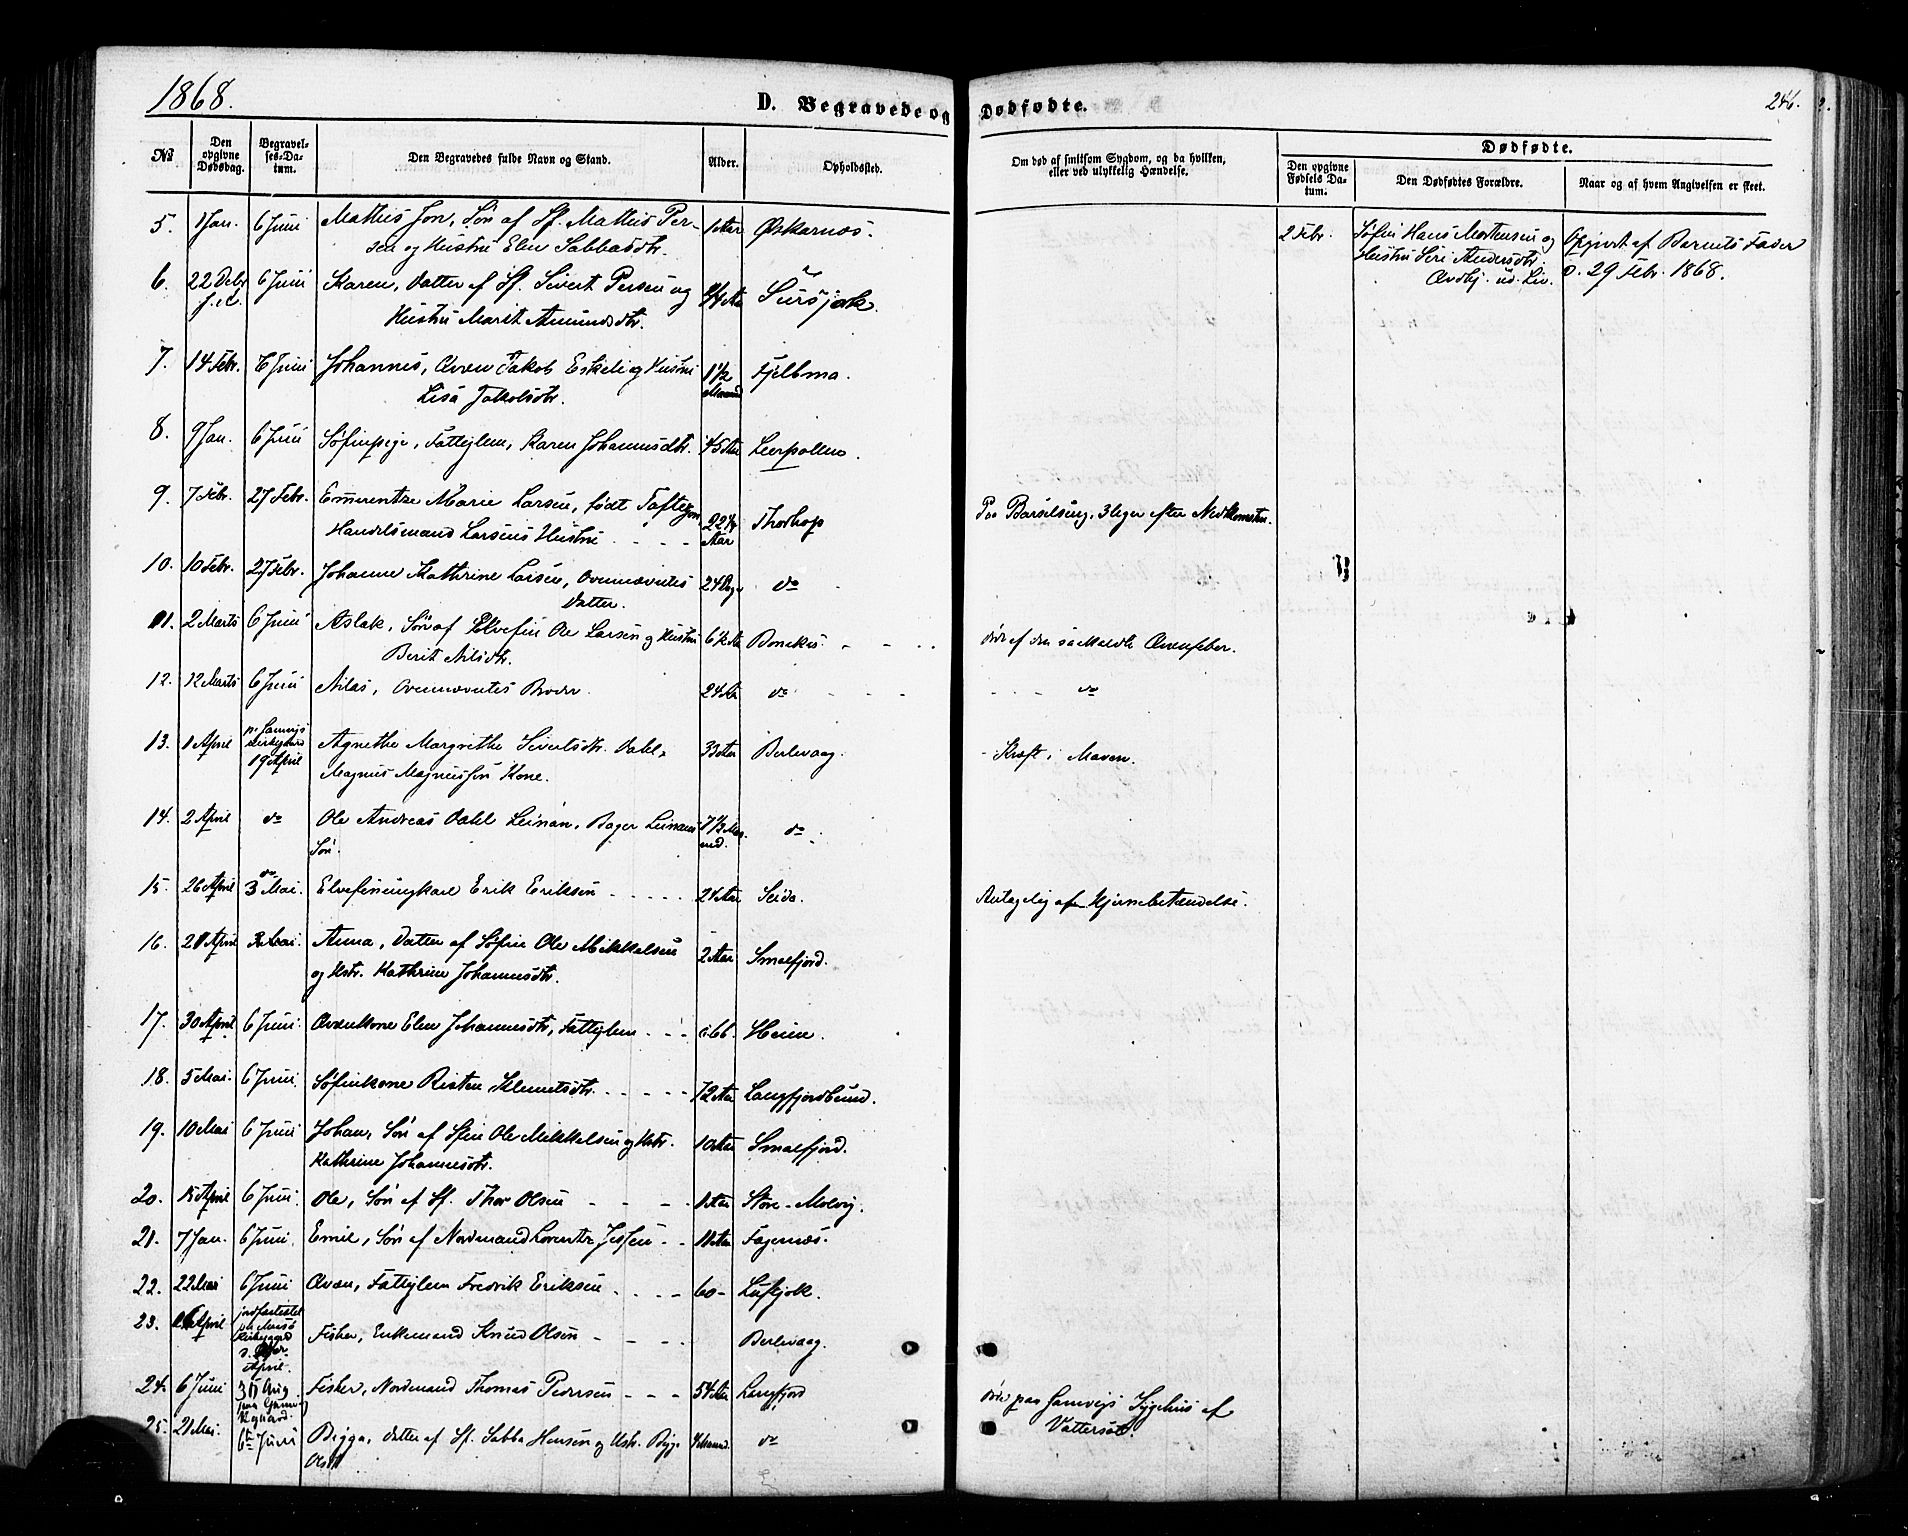 1868.
D. Begravede og Dødfødte.
246.
No
Den opgivne Dødsdag.
Begravelses-Datum.
Den Begravedes fulde Navn og Stand.
Alder.
Opholdssted.
Om død af smitsom Sygdom, og da hvilken, eller ved ulykkelig Hændelse.
Dødfødte.
Den opgivne Fødsels Datum.
Den Dødfødtes Forældre.
Naar og af hvem Angivelsen er skeet.
5. 1 Jan. 6 Juni Mathis Jon, Søn af Sf. Mathis Per- 1 Aar Øskarnæs. 2 Febr. Søfin Hans Mortensen og Opgivet af Barnets Fader
sen og Hustru Elen Sabbasdtr. Hustru Siri Andersdtr. D. 29 Febr. 1868.
6. 22 Debr 6 Juni Karen, Datter af Sf. Sivert Persen og
f. A. Hustru Marit Amundsdtr.
7. 14 Febr. 6 Juni Johannes, Qven Jakob Eskeli og Hustru 1 1/2 Fjelbma.
Lisa Jakobsdtr. Maaned
8. 9 Jan. 6 Juni Søfinpige, Fattiglem, Karen Johannesdtr. 45 Aar Leerpollen.
9. 7 Febr. 27 Febr. Emerentze Marie Larsen, født Taftezon 22 1/4 Thorhop Paa Barselseng, 3 Uger efter Nedkomsten.
Handelsmand Larsens Hustru - - - Aar
10. 10 Febr. 27 Febr. Johanne Kathrine Larsen, Ovennævntes 24 Dage do
Datter.
11. 2 Marts 6 Juni Aslak, Søn af Elvefin Ole Larsen og Hustru 6 1/2 Aar Bonakas - - - død af den saakaldte Qvænfeber.
Berit Nilsdtr.
12. 12 Marts 6 Juni Nilas, Ovennævntes Broder. 24 Aar do - - - - - - do
13. 1 April pr Gamvigs Kirkegaard 19 April Agnethe Margrethe Sivertsdtr. Dahl, 33 Aar Berlevaag. - Kræft i Maven.
Magnus Magnussens Kone.
14. 2 April do Ole Andreas Dahl Leinan, Bager Leinans 7 1/2 Maaned. do
Søn.
15. 26 April 3 Mai. Elvefinungkarl Erik Eriksen - - - - - 24 Aar Seida. Antagelig af Hjernebetændelse.
16. 21 April 3 Mai. Anna, Datter af Søfin Ole Mikkelsen 2 Aar Smalfjord.
og Hstr. Kathrine Johannesdtr.
17. 30 April 6 Juni. Qvænkone Elen Johannesdtr, Fattiglem - - - 66. Heim.
18. 5 Mai. 6 Juni. Søfinkone Risten Klemetsdtr. - - - - - 72 Aar Langfjordbund.
19. 10 Mai 6 Juni Johan, Søn af Sfin Ole Mikkelsen og Hstr. 10 Aar Smalfjord.
Kathrine Johannesdtr.
20. 15 April 6 Juni. Ole, Søn af Sf. Thor Olsen - - - - 1 Aar Store-Molvig.
21. 7 Jan. 6 Juni. Emil, Søn af Nordmand Lorentz Jessen - - 11 Aar Fagernæs.
22. 22 Mai 6 Juni Qvæn, Fattiglem Fredrik Eriksen - - - - 60 - Luftjok.
23. April jordfæstet Kirkegaard April. Fisker, Enkemand Knud Olsen - - - - Berlevaag.
24. 6 Juni 30 Aug. paa Gamvig Kgaard. Fisker, Nordmand Thomas Pedersen - - - 54 Aar Langfjord død paa Gamvigs Sygehus af
Vattersot.
25. 21 Mai. 6te Juni Bigga, Datter af Sf. Sabba Hansen og Hstr. Bigge do
Olsdtr